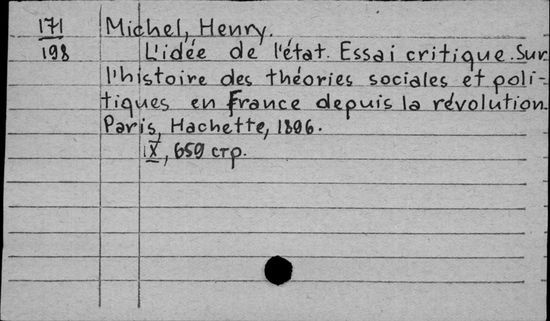 171 Michel, Henry.
198 L'idée de l'état. Essai critique. Sur
l'histoire des théories sociales et poli-
tiques en France depuis la révolution
Paris, Hachette, 1896.
IX, 659 стр.